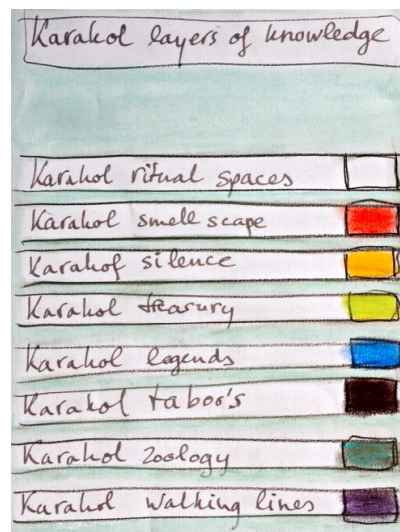 Karakol layers of knowledge
Karakol ritual spaces
Karakol smell scape
Karakol silence
Karakol treasury
Karakol legends
Karakol taboo's
Karakol zoology
Karakol walking lines